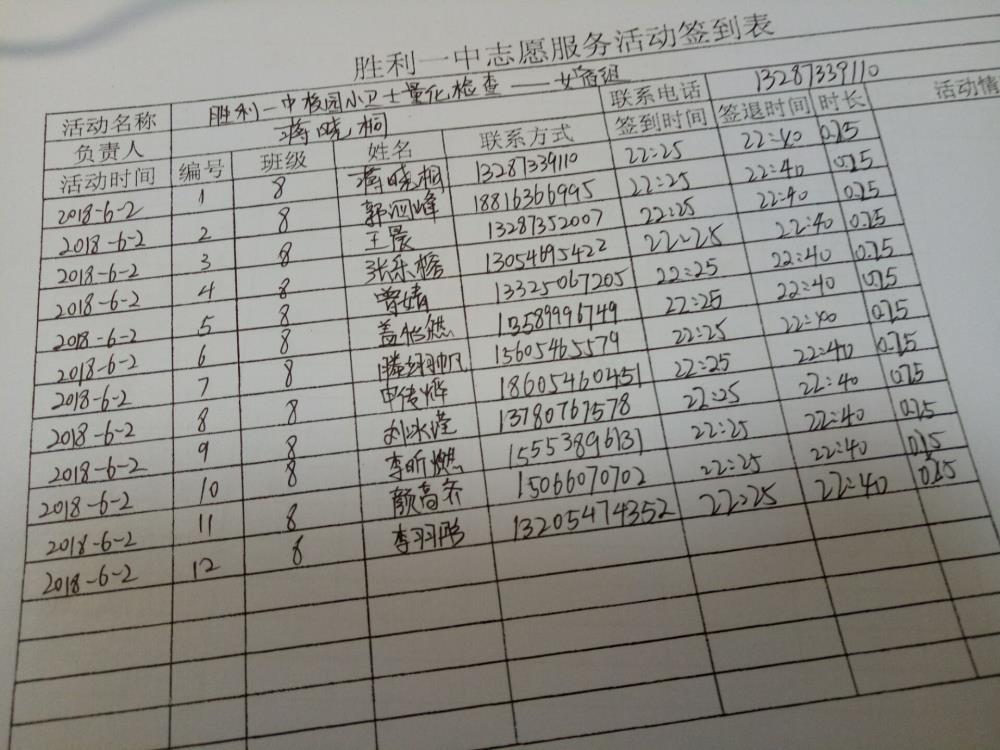 胜利一中志愿服务活动签到表
活动名称 胜利一中校园小卫士量化检查——女宿组 联系电话 13287339110 活动情
负责人 蒋晓桐
活动时间 编号 班级 姓名 联系方式 签到时间 签退时间 时长
2018-6-2 1 8 蒋晓桐 13287339110 22:25 22:40 0.25
2018-6-2 2 8 郭泗峰 18816366995 22:25 22:40 0.25
2018-6-2 3 8 王晨 13287352007 22:25 22:40 0.25
2018-6-2 4 8 张乐榕 13054695422 22:25 22:40 0.25
2018-6-2 5 8 曾婧 13325067205 22:25 22:40 0.25
2018-6-2 6 8 盖悠然 13589996749 22:25 22:40 0.25
2018-6-2 7 8 滕翊帆 15605465579 22:25 22:40 0.25
2018-6-2 8 8 申传烨 18605460451 22:25 22:40 0.25
2018-6-2 9 8 刘冰滢 13780767578 22:25 22:40 0.25
2018-6-2 10 8 李昕燃 15553896131 22:25 22:40 0.25
2018-6-2 11 8 颜高齐 15066070702 22:25 22:40 0.25
2018-6-2 12 8 李羽彤 13205474352 22:25 22:40 0.25